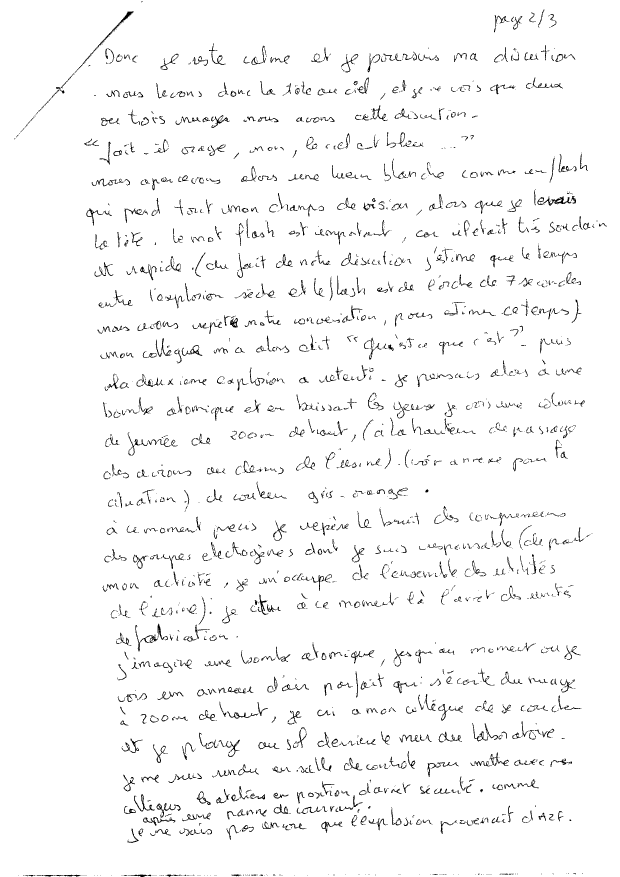 page 2/3
Donc je reste calme et je poursuis ma discution
nous levons donc la tête au ciel, et je ne vois que deux
ou trois nuages nous avons cette discution -
"fait-il orage, non, le ciel est bleu ...."
nous apercevons alors une lueur blanche comme un flash
qui prend tout mon champs de vision, alors que je levais
la tête. le mot flash est important, car il était très soudain
et rapide. (du fait de notre discution j'estime que le temps
entre l'explosion sèche et le flash est de l'ordre de 7 secondes
nous avons repété notre conversation, pour estimer ce temps)
mon collègue m'a alors dit "Qu'est ce que c'est" - puis
la deuxième explosion a retenti - je pensais alors à une
bombe atomique et en baissant les yeux je vois une colonne
de fumée de 200m de haut, (à la hauteur de passage
des avions au dessus de l'usine). (voir annexe pour la
situation). de couleur gris-orange.
à ce moment precis je repère le bruit des compresseurs
des groupes electrogènes dont je suis responsable (de part
mon activité, je m'occupe de l'ensemble des utilités
de l'usine): je à ce moment là l'arret des unités
de fabrication.
j'imagine une bombe atomique, jusqu'au moment ou je
vois un anneau d'air parfait qui s'écarte du nuage
à 200m de haut, je cri a mon collègue de se coucher
et je plonge au sol derriere le mur du laboratoire.
Je me suis rendu en salle de controle pour mettre avec mes
collègues les ateliers en position d'arret sécurité. comme
après une panne de courrant.
je ne sais pas encore que l'explosion provenait d'AZF.